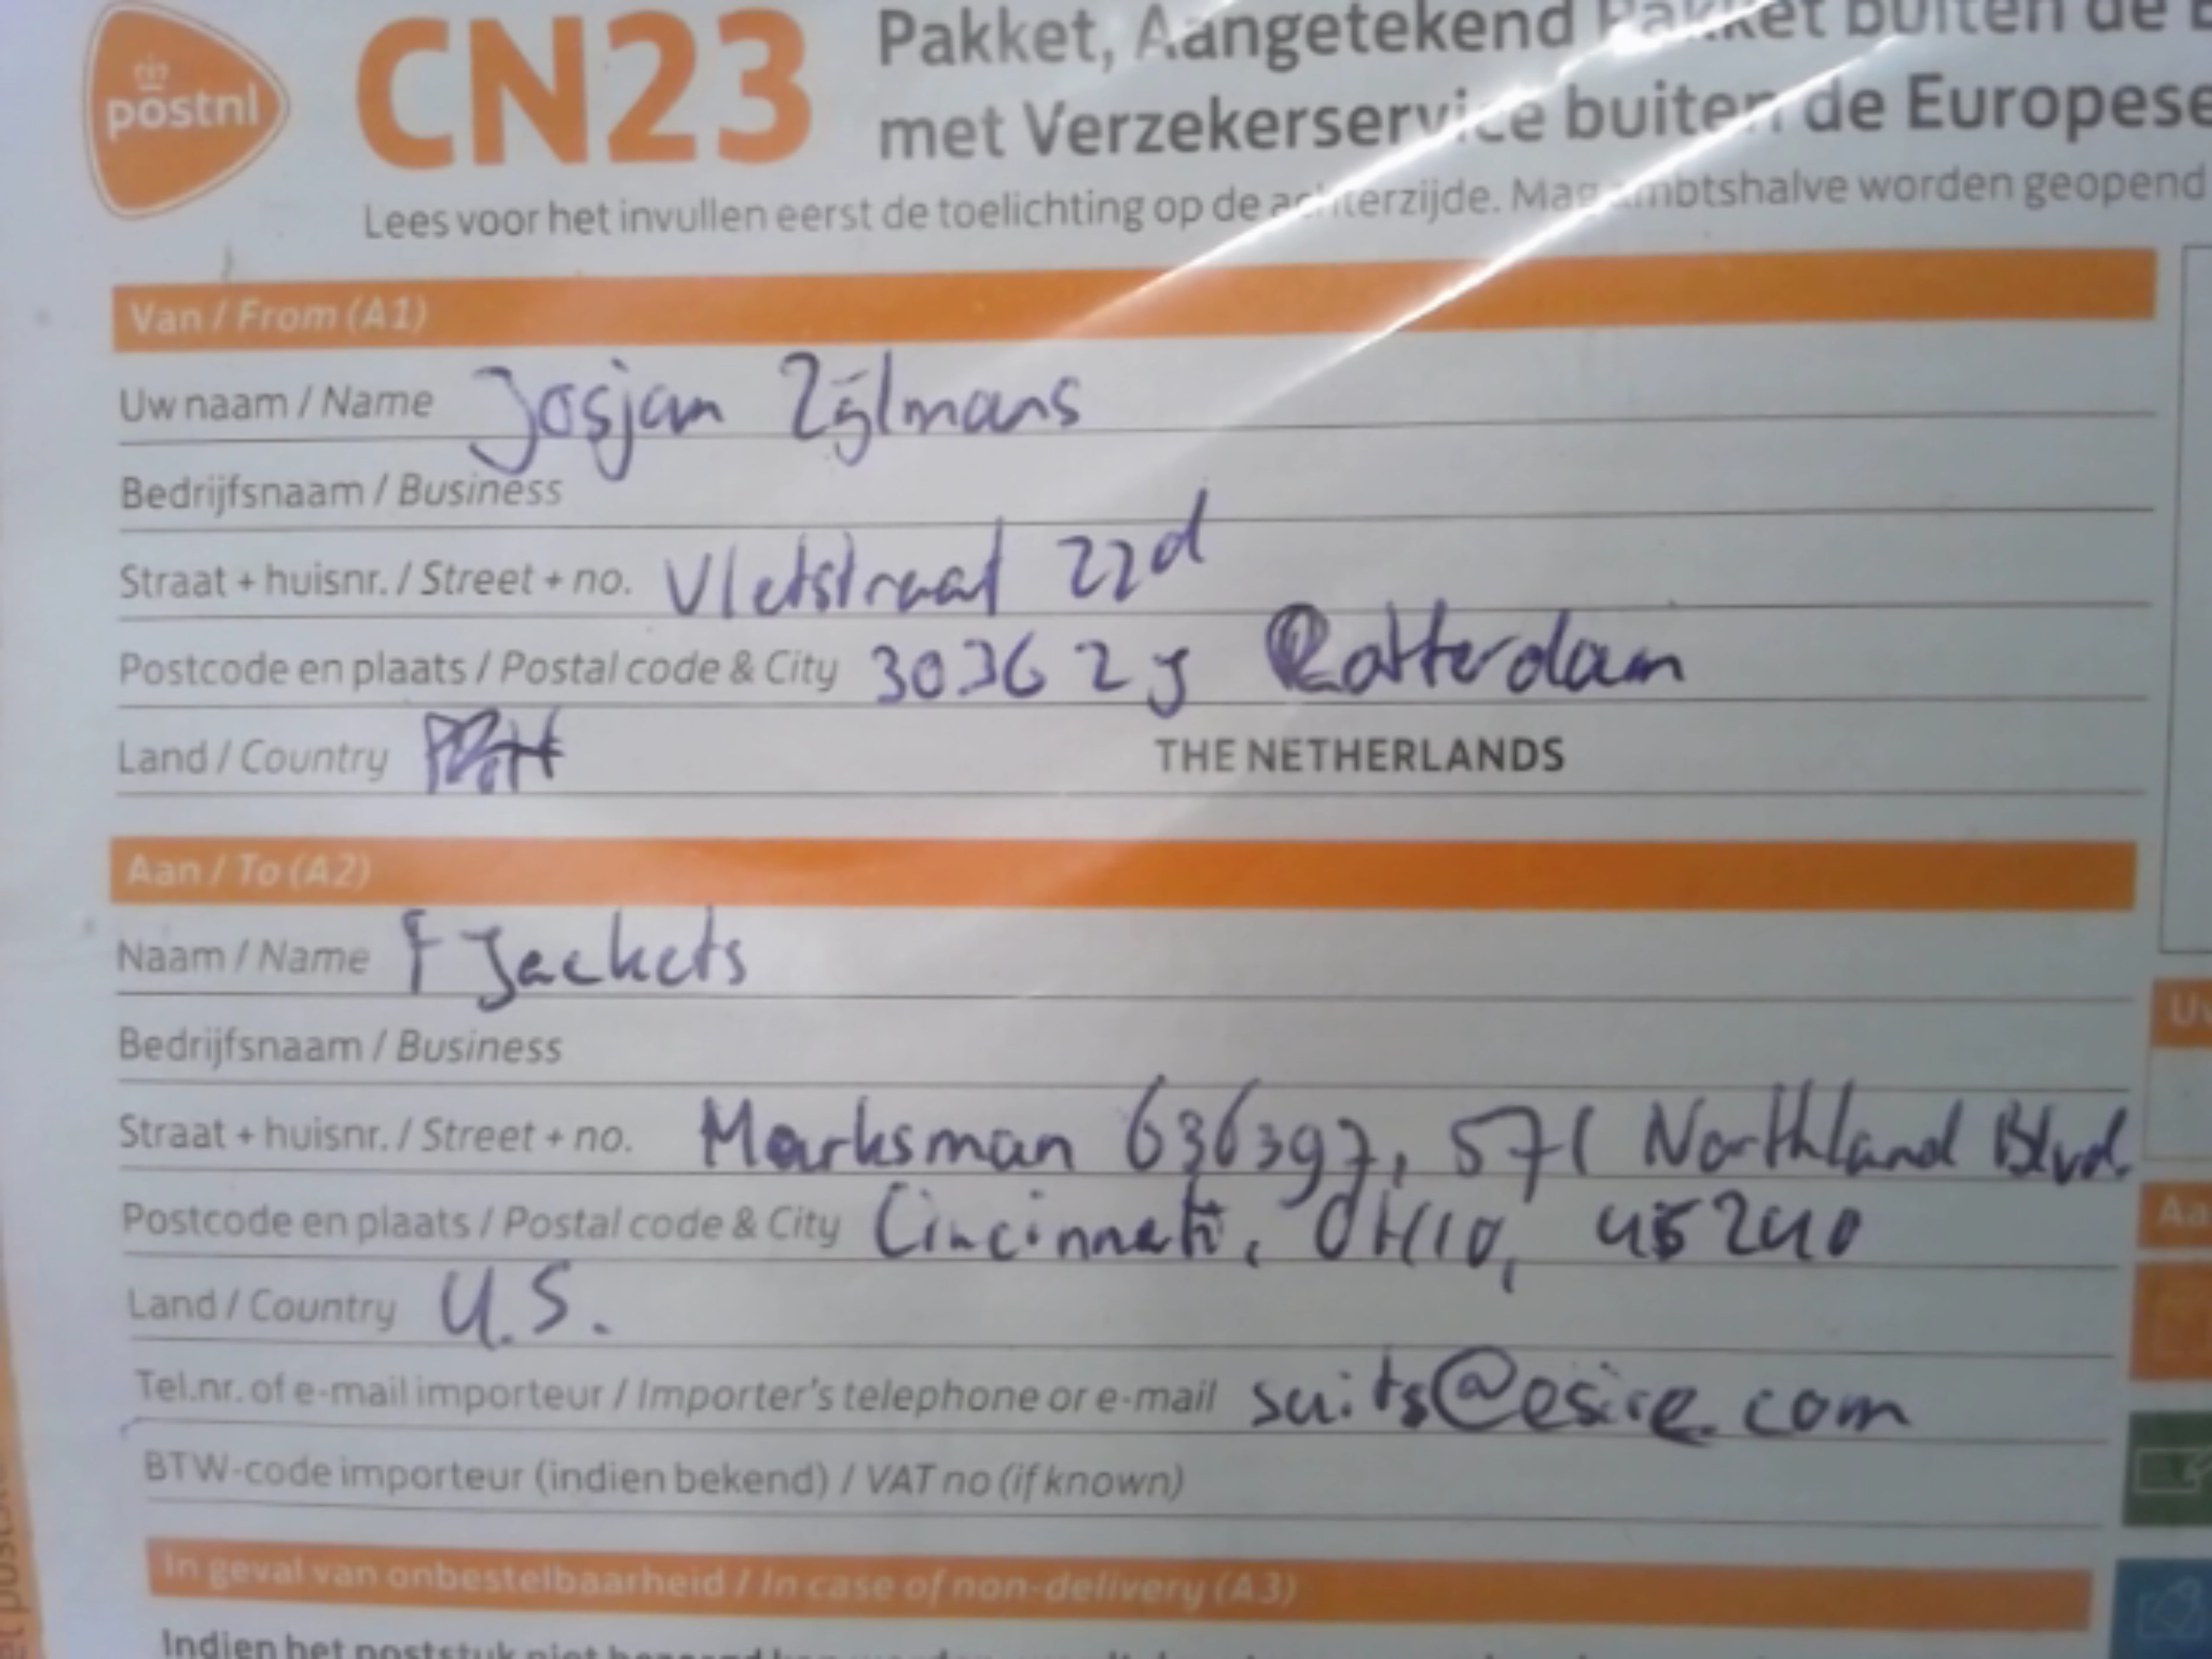 postnl
CN23
Pakket, Aangetekend Pakket buiten de E
met Verzekerservice buiten de Europese
Lees voor het invullen eerst de toelichting op de achterzijde. Mag ambtshalve worden geopend
Van / From (A1)
Uw naam / Name Josjan Zijlmans
Bedrijfsnaam / Business
Straat + huisnr. / Street + no. Vletstraat 22d
Postcode en plaats / Postal code & City 3036 2J Rotterdam
Land / Country THE NETHERLANDS
Aan / To (A2)
Naam / Name F Jackets
Bedrijfsnaam / Business
Straat + huisnr. / Street + no. Marksman 636397, 571 Northland Blvd.
Postcode en plaats / Postal code & City Cincinnati, OHIO, 45240
Land / Country U.S.
Tel.nr. of e-mail importeur / Importer's telephone or e-mail suits@esire.com
BTW-code importeur (indien bekend) / VAT no (if known)
In geval van onbestelbaarheid / In case of non-delivery (A3)
Indien het poststuk niet